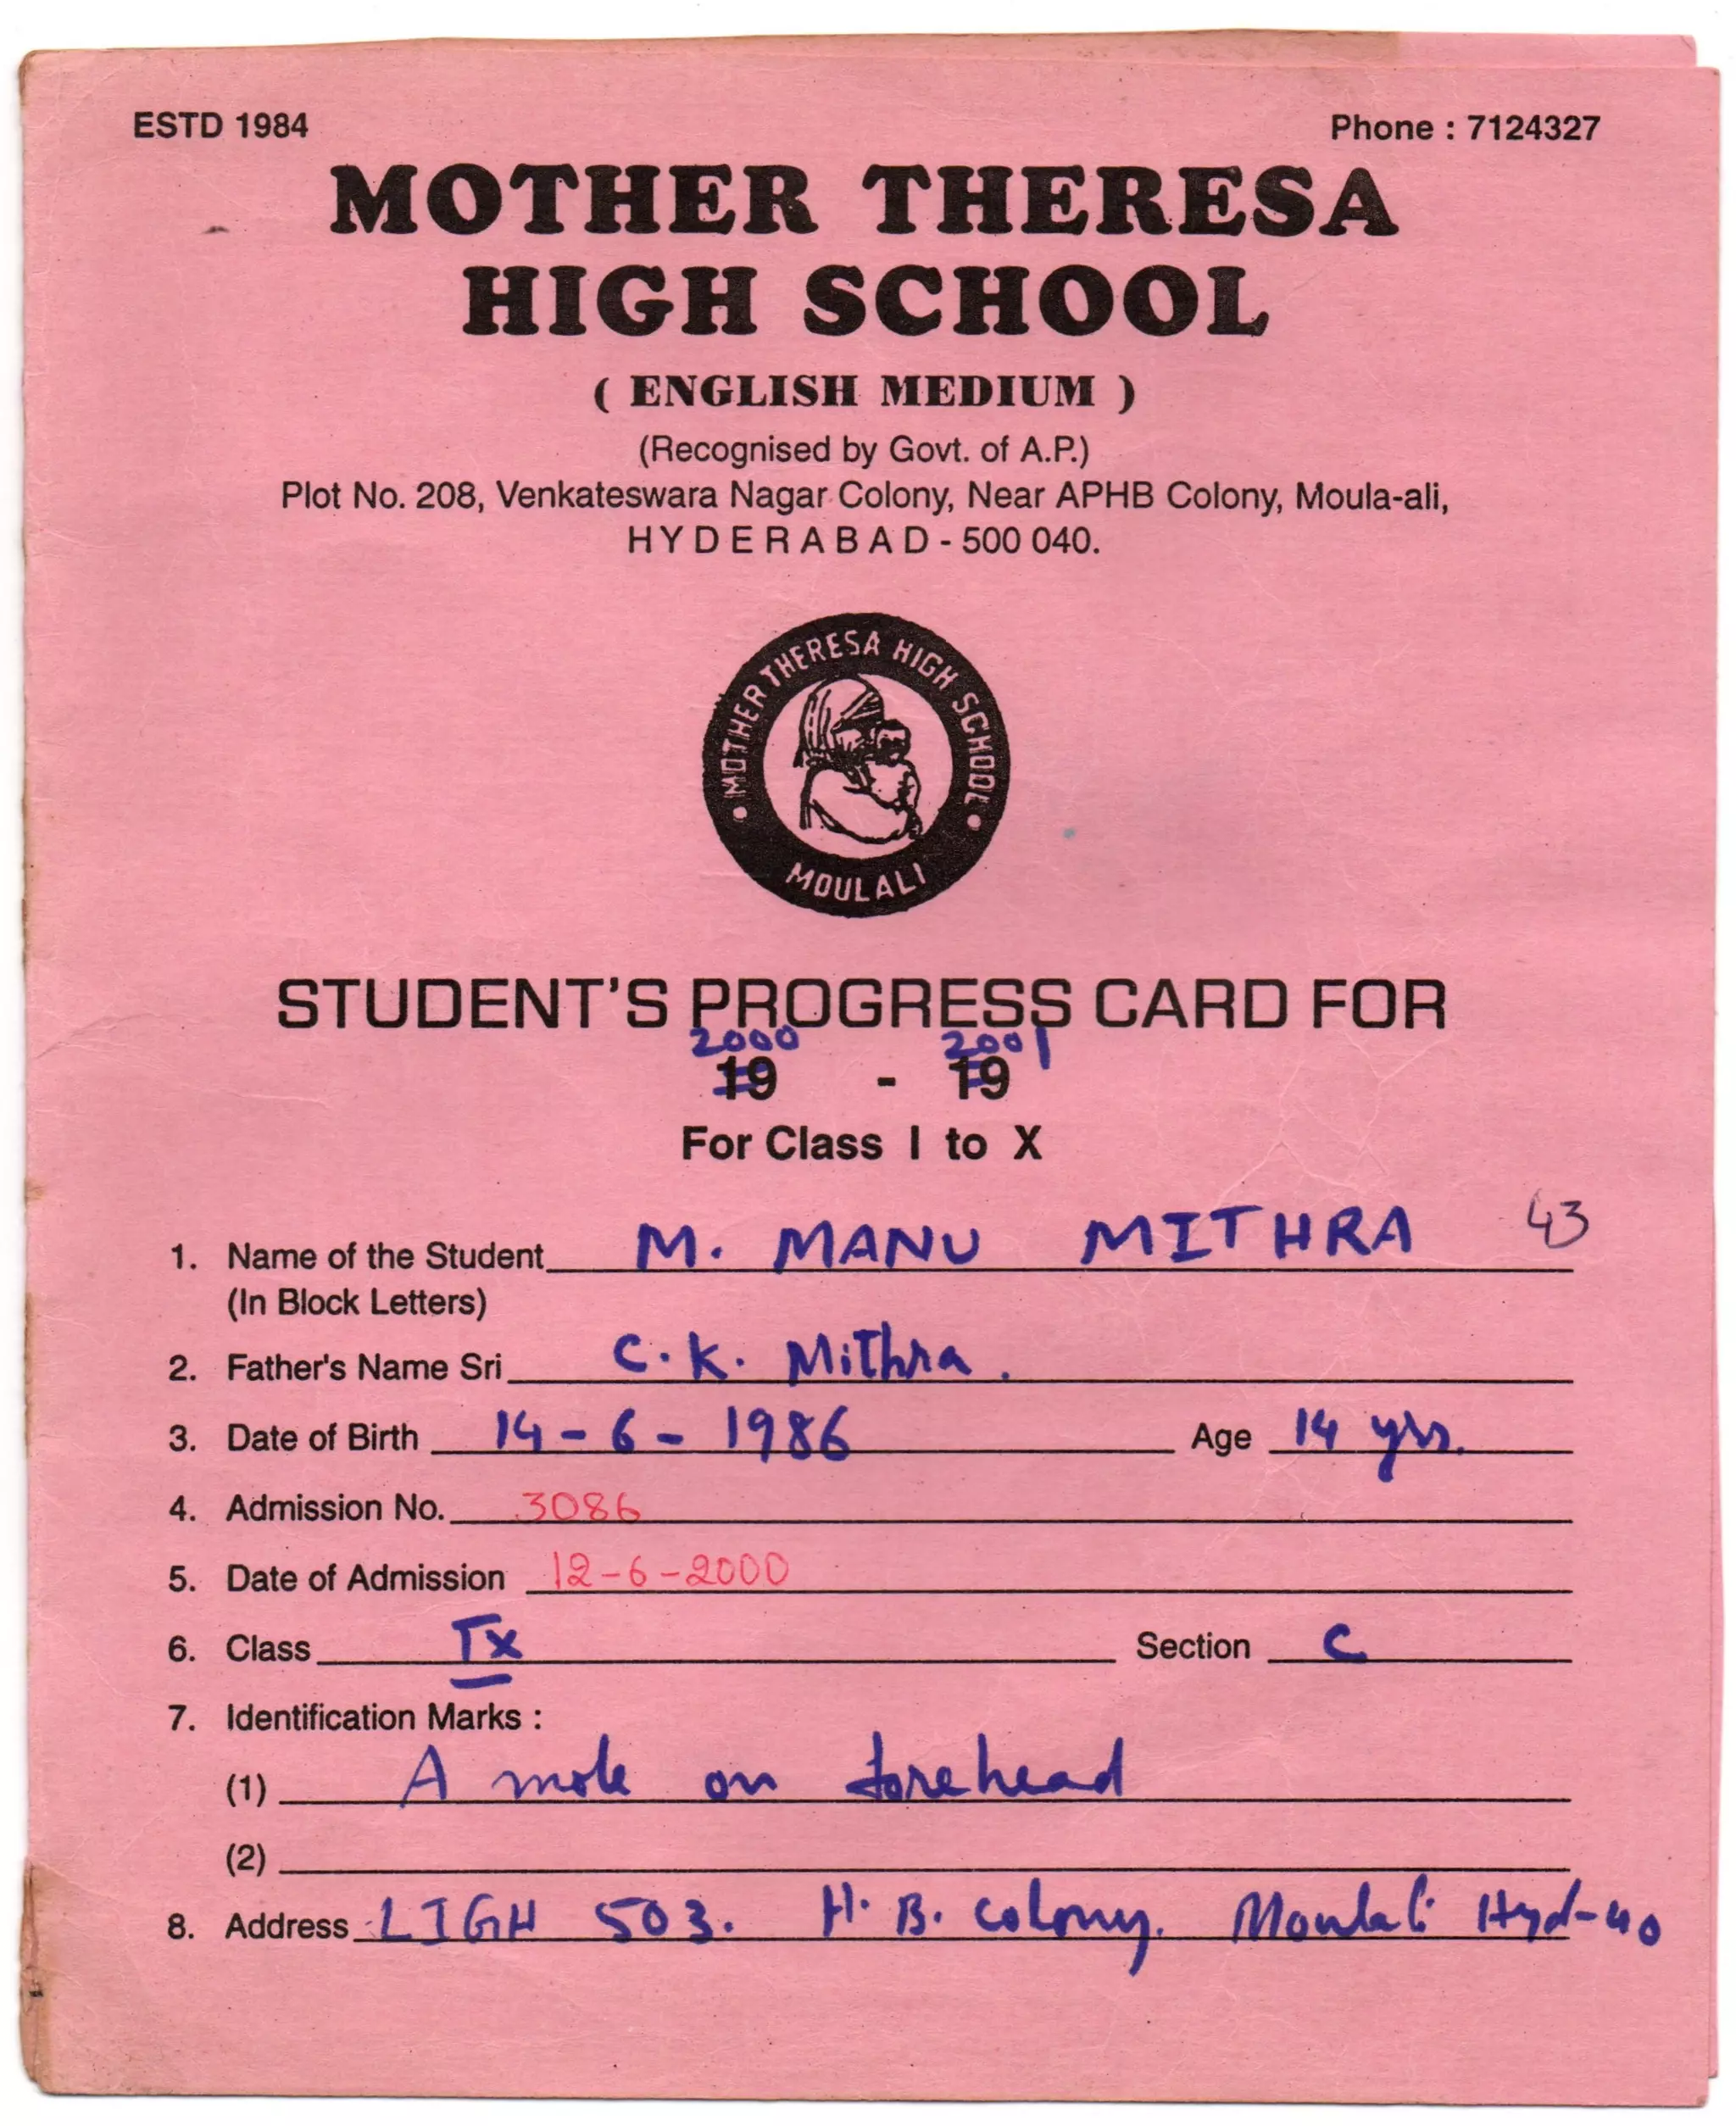 ESTD 1984 Phone : 7124327
MOTHER THERESA
HIGH SCHOOL
( ENGLISH MEDIUM )
(Recognised by Govt. of A.P.)
Plot No. 208, Venkateswara Nagar Colony, Near APHB Colony, Moula-ali,
HYDERABAD - 500 040.
MOTHER THERESA HIGH SCHOOL
MOULALI
STUDENT'S PROGRESS CARD FOR
2000 2001
19 - 19
For Class I to X
1. Name of the Student M. MANU MITHRA 43
(In Block Letters)
2. Father's Name Sri C.K. Mithra.
3. Date of Birth 14-6-1986 Age 14 yrs.
4. Admission No. 3086
5. Date of Admission 12-6-2000
6. Class IX Section C
7. Identification Marks :
(1) A mole on forehead
(2)
8. Address LIGH 503. H.B. Colony. Moulali Hyd-40